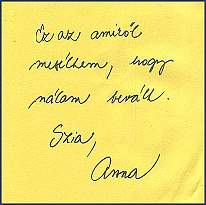 Ez az amiről
meséltem, hogy
nálam bevált.
Szia,
Anna